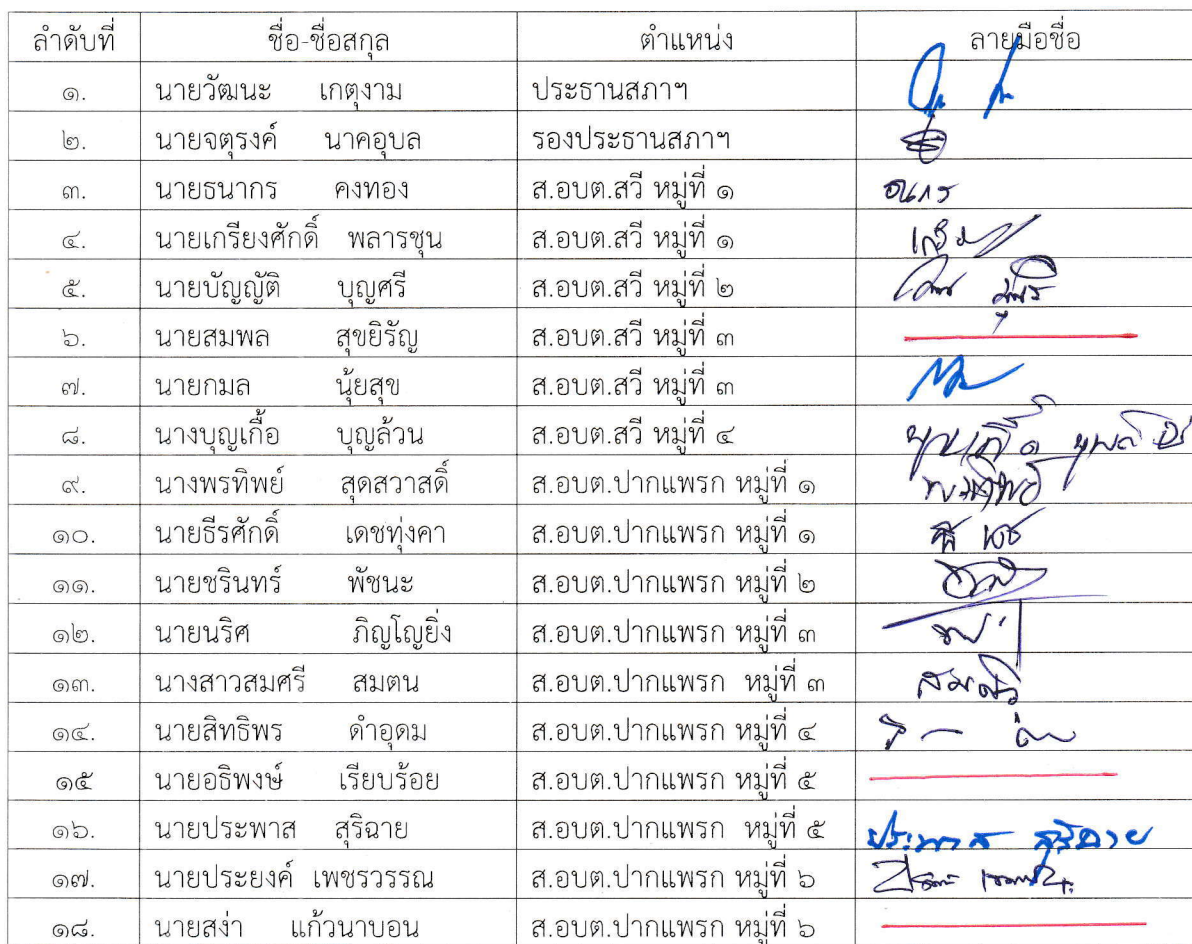 ลำดับที่ ชื่อ-ชื่อสกุล ตำแหน่ง ลายมือชื่อ
๑. นายวัฒนะ เกตุงาม ประธานสภาฯ
๒. นายจตุรงค์ นาคอุบล รองประธานสภาฯ
๓. นายธนากร คงทอง ส.อบต.สวี หมู่ที่ ๑
๔. นายเกรียงศักดิ์ พลารชุน ส.อบต.สวี หมู่ที่ ๑
๕. นายบัญญัติ บุญศรี ส.อบต.สวี หมู่ที่ ๒
๖. นายสมพล สุขยิรัญ ส.อบต.สวี หมู่ที่ ๓
๗. นายกมล นุ้ยสุข ส.อบต.สวี หมู่ที่ ๓
๘. นางบุญเกื้อ บุญล้วน ส.อบต.สวี หมู่ที่ ๔
๙. นางพรทิพย์ สุดสวาสดิ์ ส.อบต.ปากแพรก หมู่ที่ ๑
๑๐. นายธีรศักดิ์ เดชทุ่งคา ส.อบต.ปากแพรก หมู่ที่ ๑
๑๑. นายชรินทร์ พัชนะ ส.อบต.ปากแพรก หมู่ที่ ๒
๑๒. นายนริศ ภิญโญยิ่ง ส.อบต.ปากแพรก หมู่ที่ ๓
๑๓. นางสาวสมศรี สมตน ส.อบต.ปากแพรก หมู่ที่ ๓ สมศรี
๑๔. นายสิทธิพร ดำอุดม ส.อบต.ปากแพรก หมู่ที่ ๔
๑๕ นายอธิพงษ์ เรียบร้อย ส.อบต.ปากแพรก หมู่ที่ ๕
๑๖. นายประพาส สุริฉาย ส.อบต.ปากแพรก หมู่ที่ ๕ ประพาส สุริฉาย
๑๗. นายประยงค์ เพชรวรรณ ส.อบต.ปากแพรก หมู่ที่ ๖
๑๘. นายสง่า แก้วนาบอน ส.อบต.ปากแพรก หมู่ที่ ๖